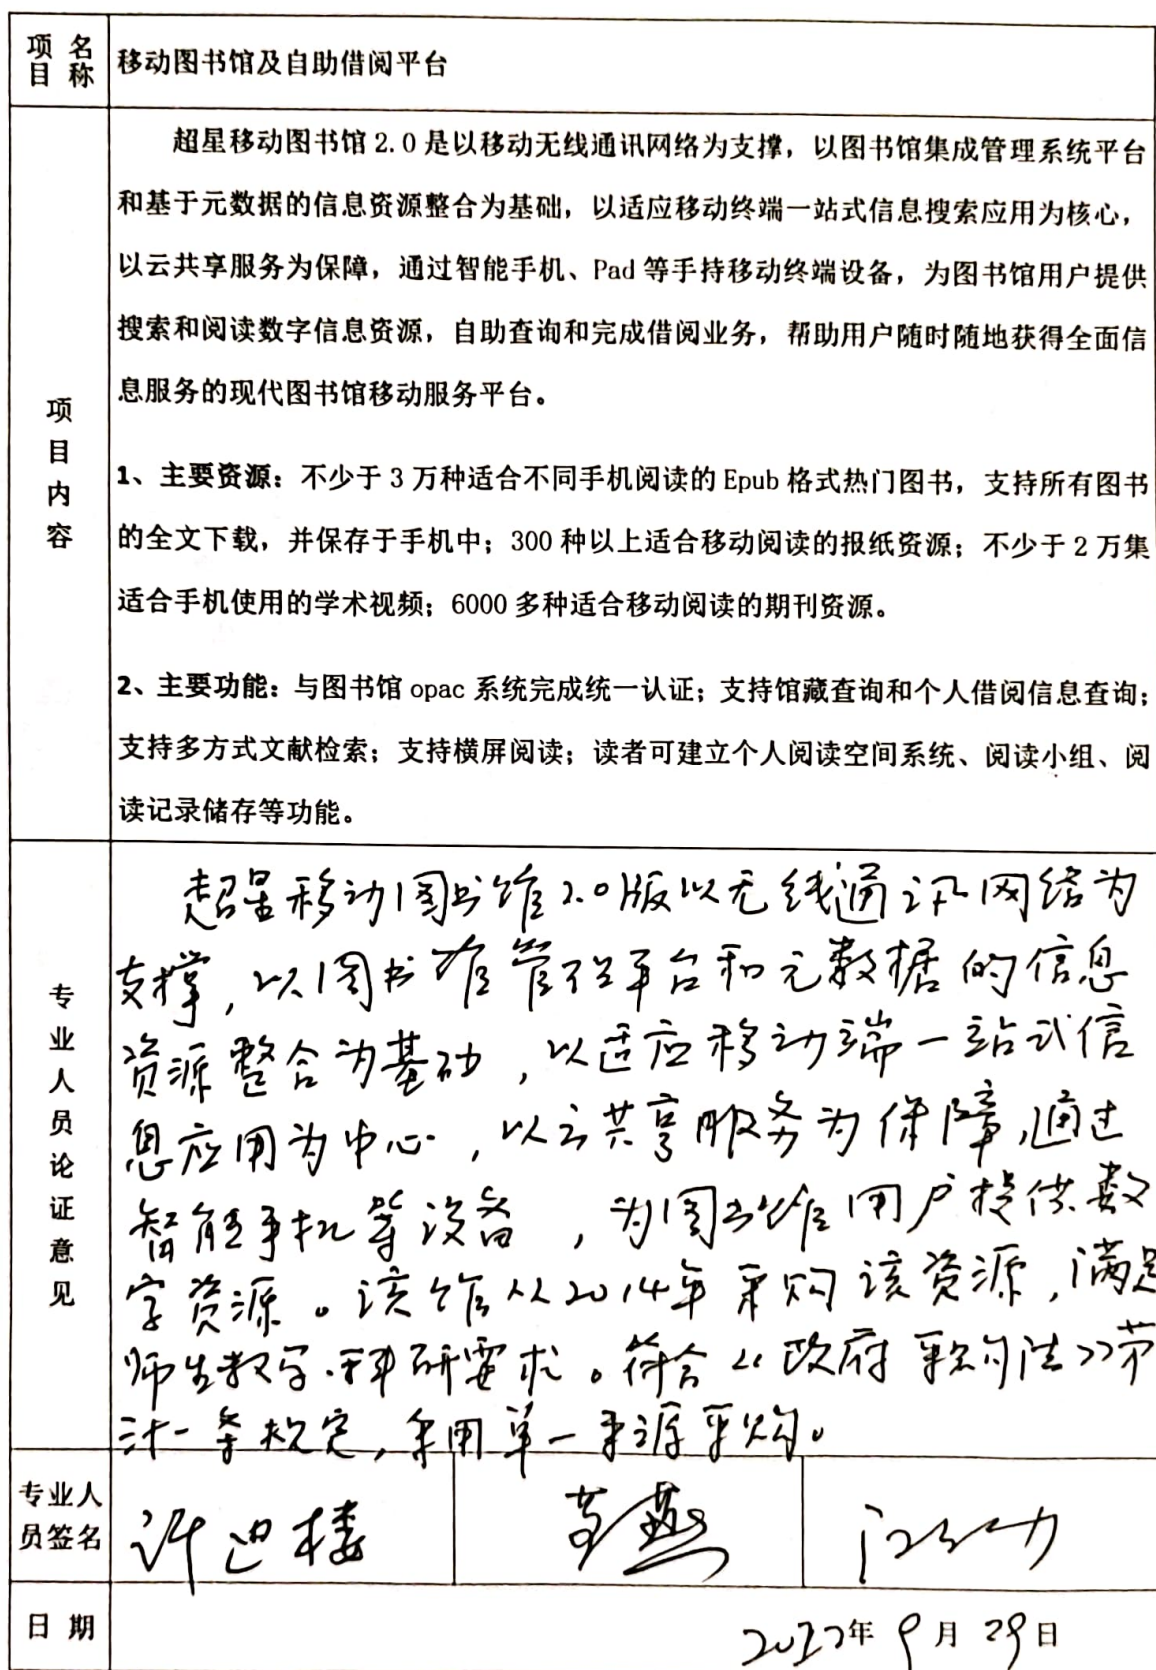 项目名称
移动图书馆及自助借阅平台
项目内容
超星移动图书馆2.0是以移动无线通讯网络为支撑，以图书馆集成管理系统平台
和基于元数据的信息资源整合为基础，以适应移动终端一站式信息搜索应用为核心，
以云共享服务为保障，通过智能手机、Pad等手持移动终端设备，为图书馆用户提供
搜索和阅读数字信息资源，自助查询和完成借阅业务，帮助用户随时随地获得全面信
息服务的现代图书馆移动服务平台。
1、主要资源：不少于3万种适合不同手机阅读的Epub格式热门图书，支持所有图书
的全文下载，并保存于手机中；300种以上适合移动阅读的报纸资源；不少于2万集
适合手机使用的学术视频；6000多种适合移动阅读的期刊资源。
2、主要功能：与图书馆opac系统完成统一认证；支持馆藏查询和个人借阅信息查询；
支持多方式文献检索；支持横屏阅读；读者可建立个人阅读空间系统、阅读小组、阅
读记录储存等功能。
专业人员论证意见
超星移动图书馆2.0版以无线通讯网络为
支撑，以图书馆管理平台和元数据的信息
资源整合为基础，以适应移动端一站式信
息应用为中心，以云共享服务为保障，通过
智能手机等设备，为图书馆用户提供数
字资源。该馆从2014年采购该资源，满足
师生教学、科研要求。符合《政府采购法》第
卅一条规定，采用单一来源采购。
专业人员签名
许迎楼
燕
日期
年9月29日